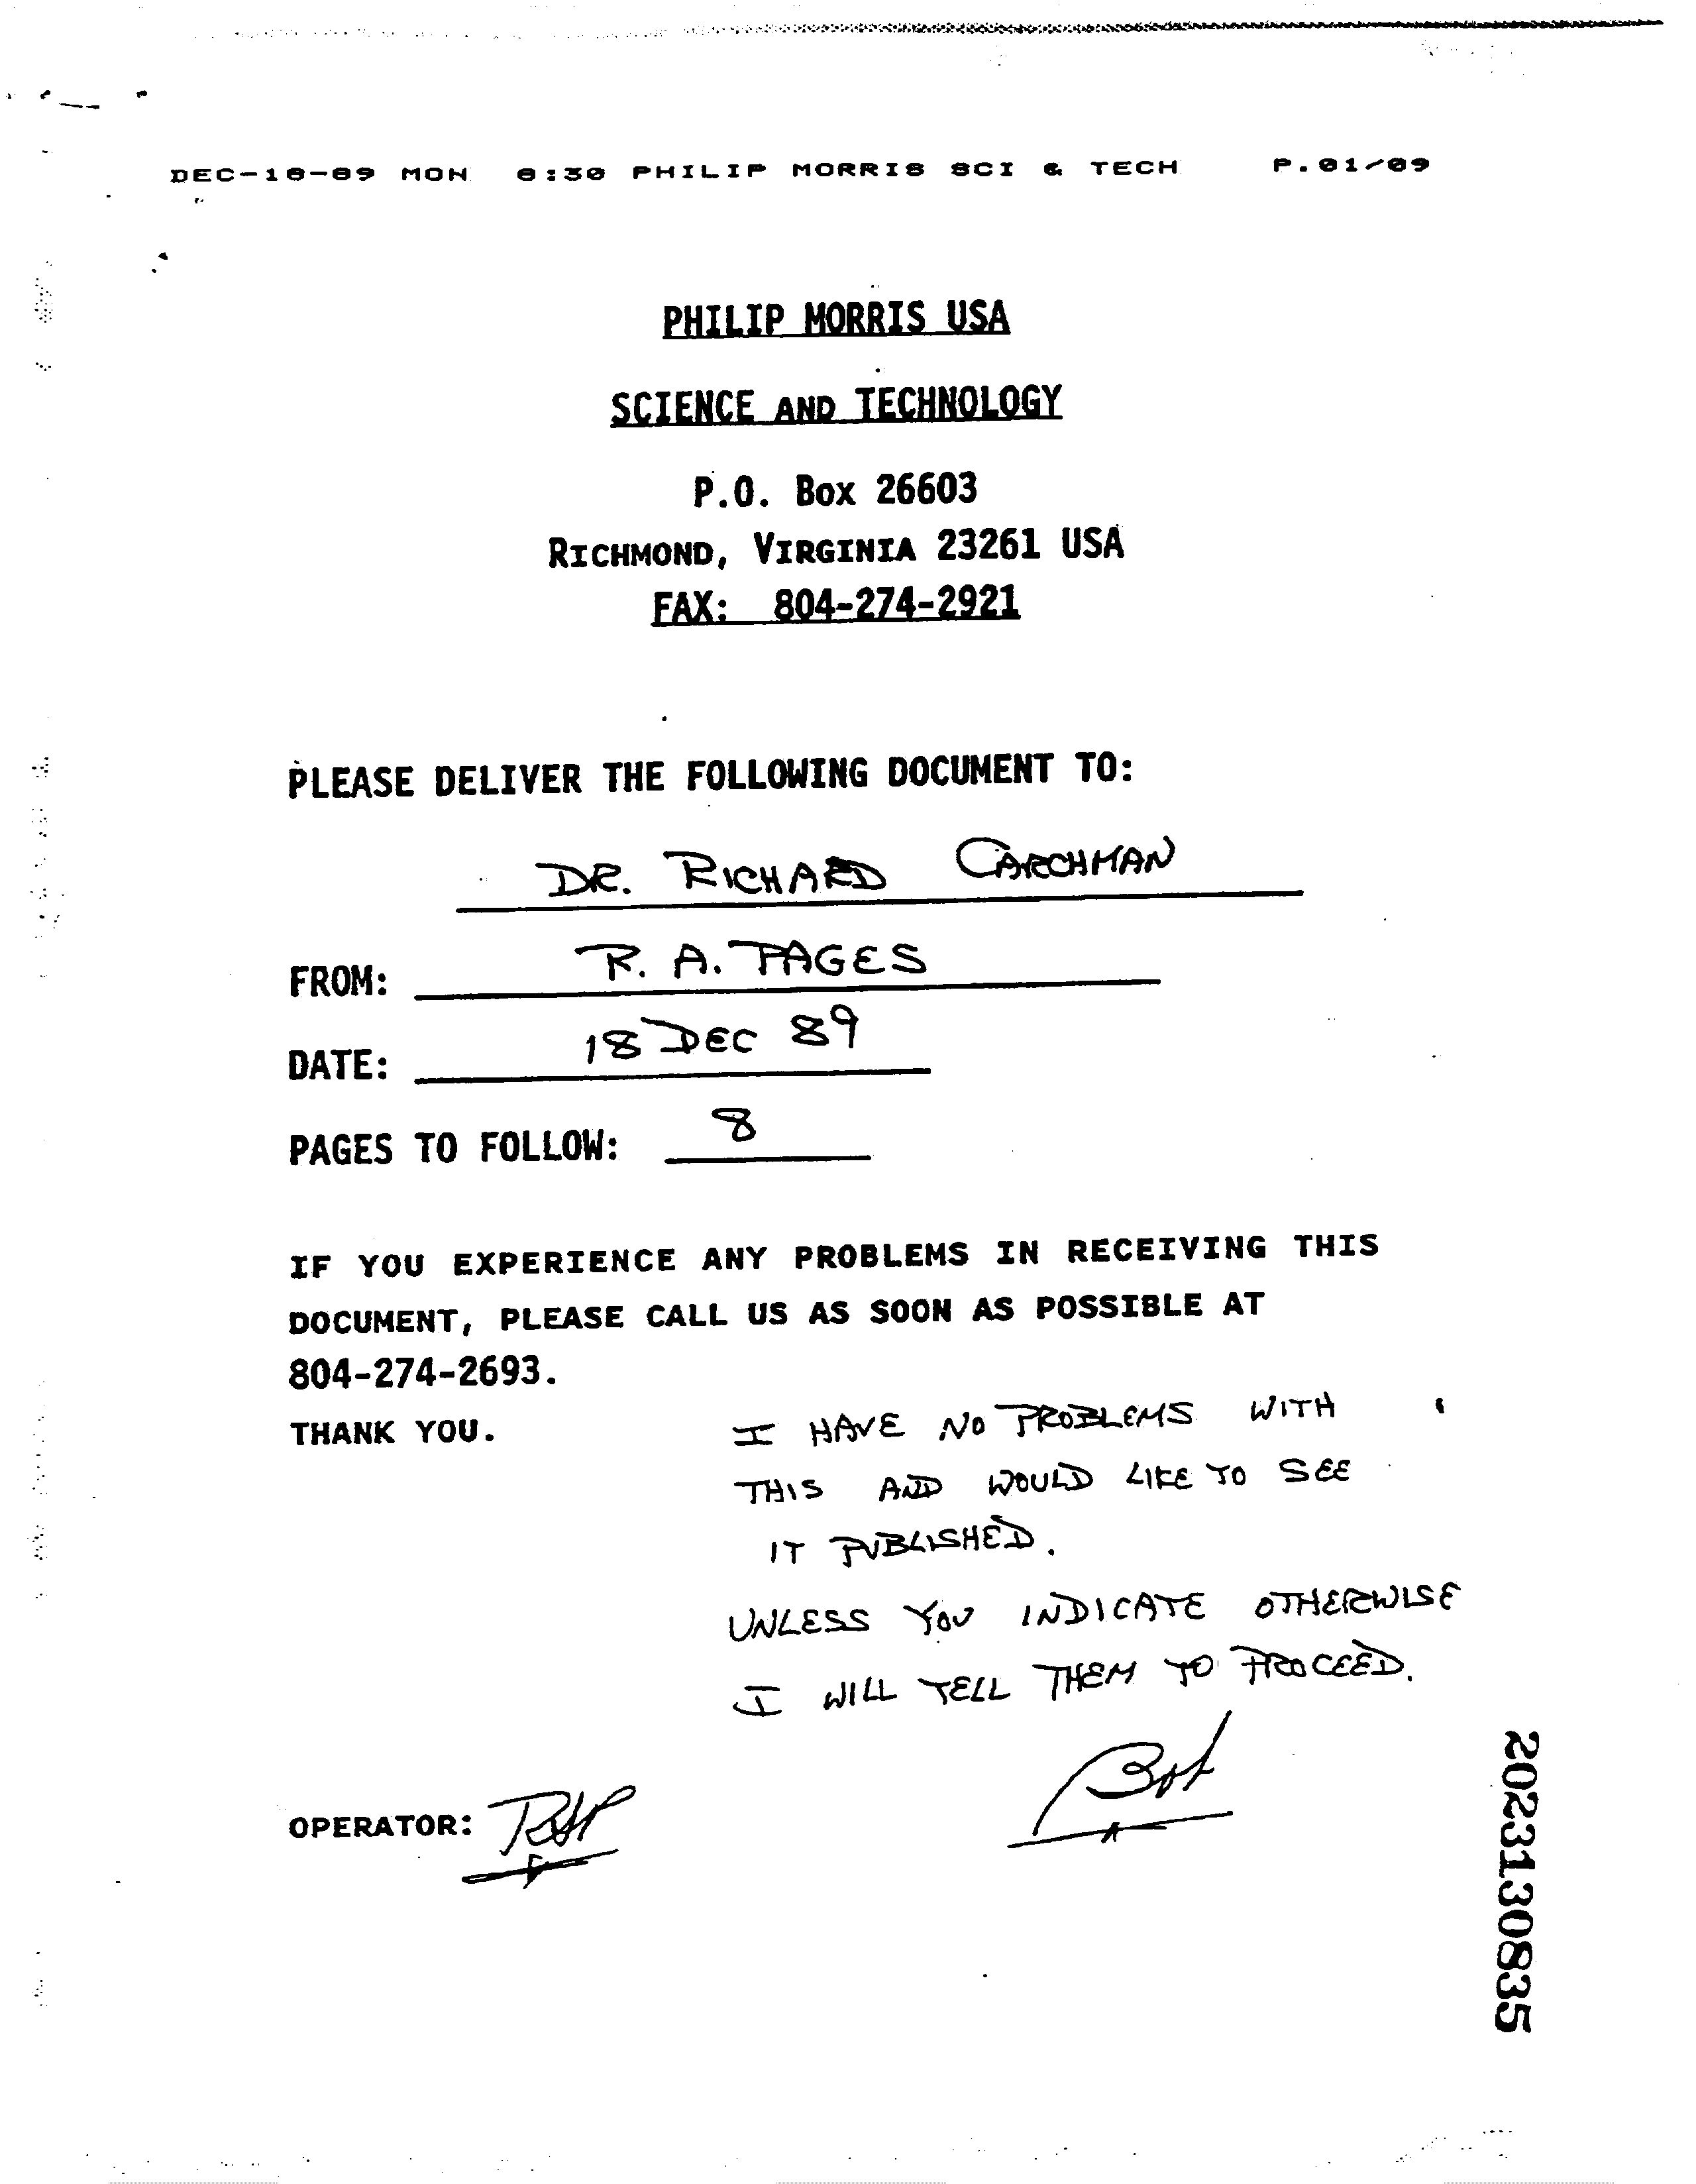 DEC-18-89 MON 8:30 PHILIP MORRIS SCI & TECH P.01/09
PHILIP MORRIS USA
SCIENCE AND TECHNOLOGY
P.O. BOX 26603
RICHMOND, VIRGINIA 23261 USA
FAX: 804-274-2921
PLEASE DELIVER THE FOLLOWING DOCUMENT TO:
DR. RICHARD CARCHMAN
FROM: R. A. PAGES
DATE: 18 DEC 89
PAGES TO FOLLOW: 8
IF YOU EXPERIENCE ANY PROBLEMS IN RECEIVING THIS
DOCUMENT, PLEASE CALL US AS SOON AS POSSIBLE AT
804-274-2693.
THANK YOU.
I HAVE NO PROBLEMS WITH
THIS AND WOULD LIKE TO SEE
IT PUBLISHED.
UNLESS YOU INDICATE OTHERWISE
I WILL TELL THEM TO PROCEED.
Bob
OPERATOR: RAP
2023130835